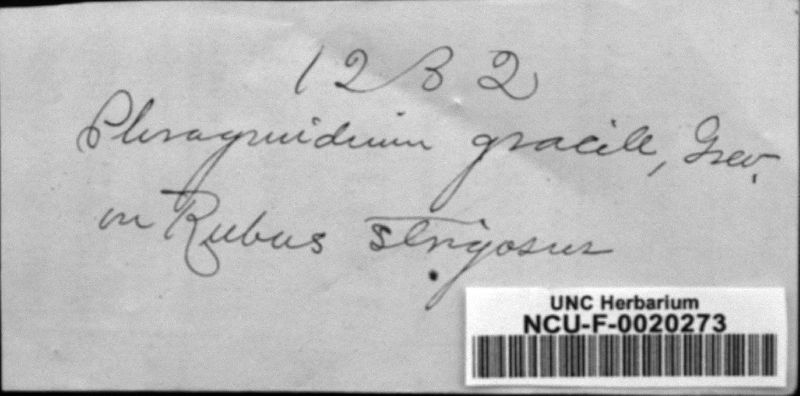 1232
Phragmidium gracile, Grev.
on Rubus strigosus
UNC Herbarium
NCU-F-0020273